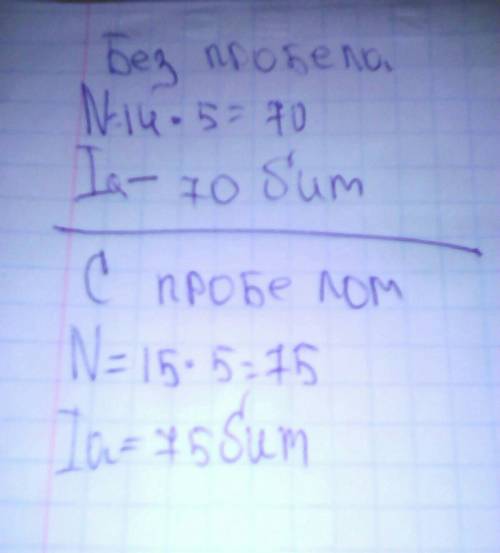 Без пробела.
N=14·5=70
Ia- 70 бит
С пробелом
N=15·5=75
Ia=75бит